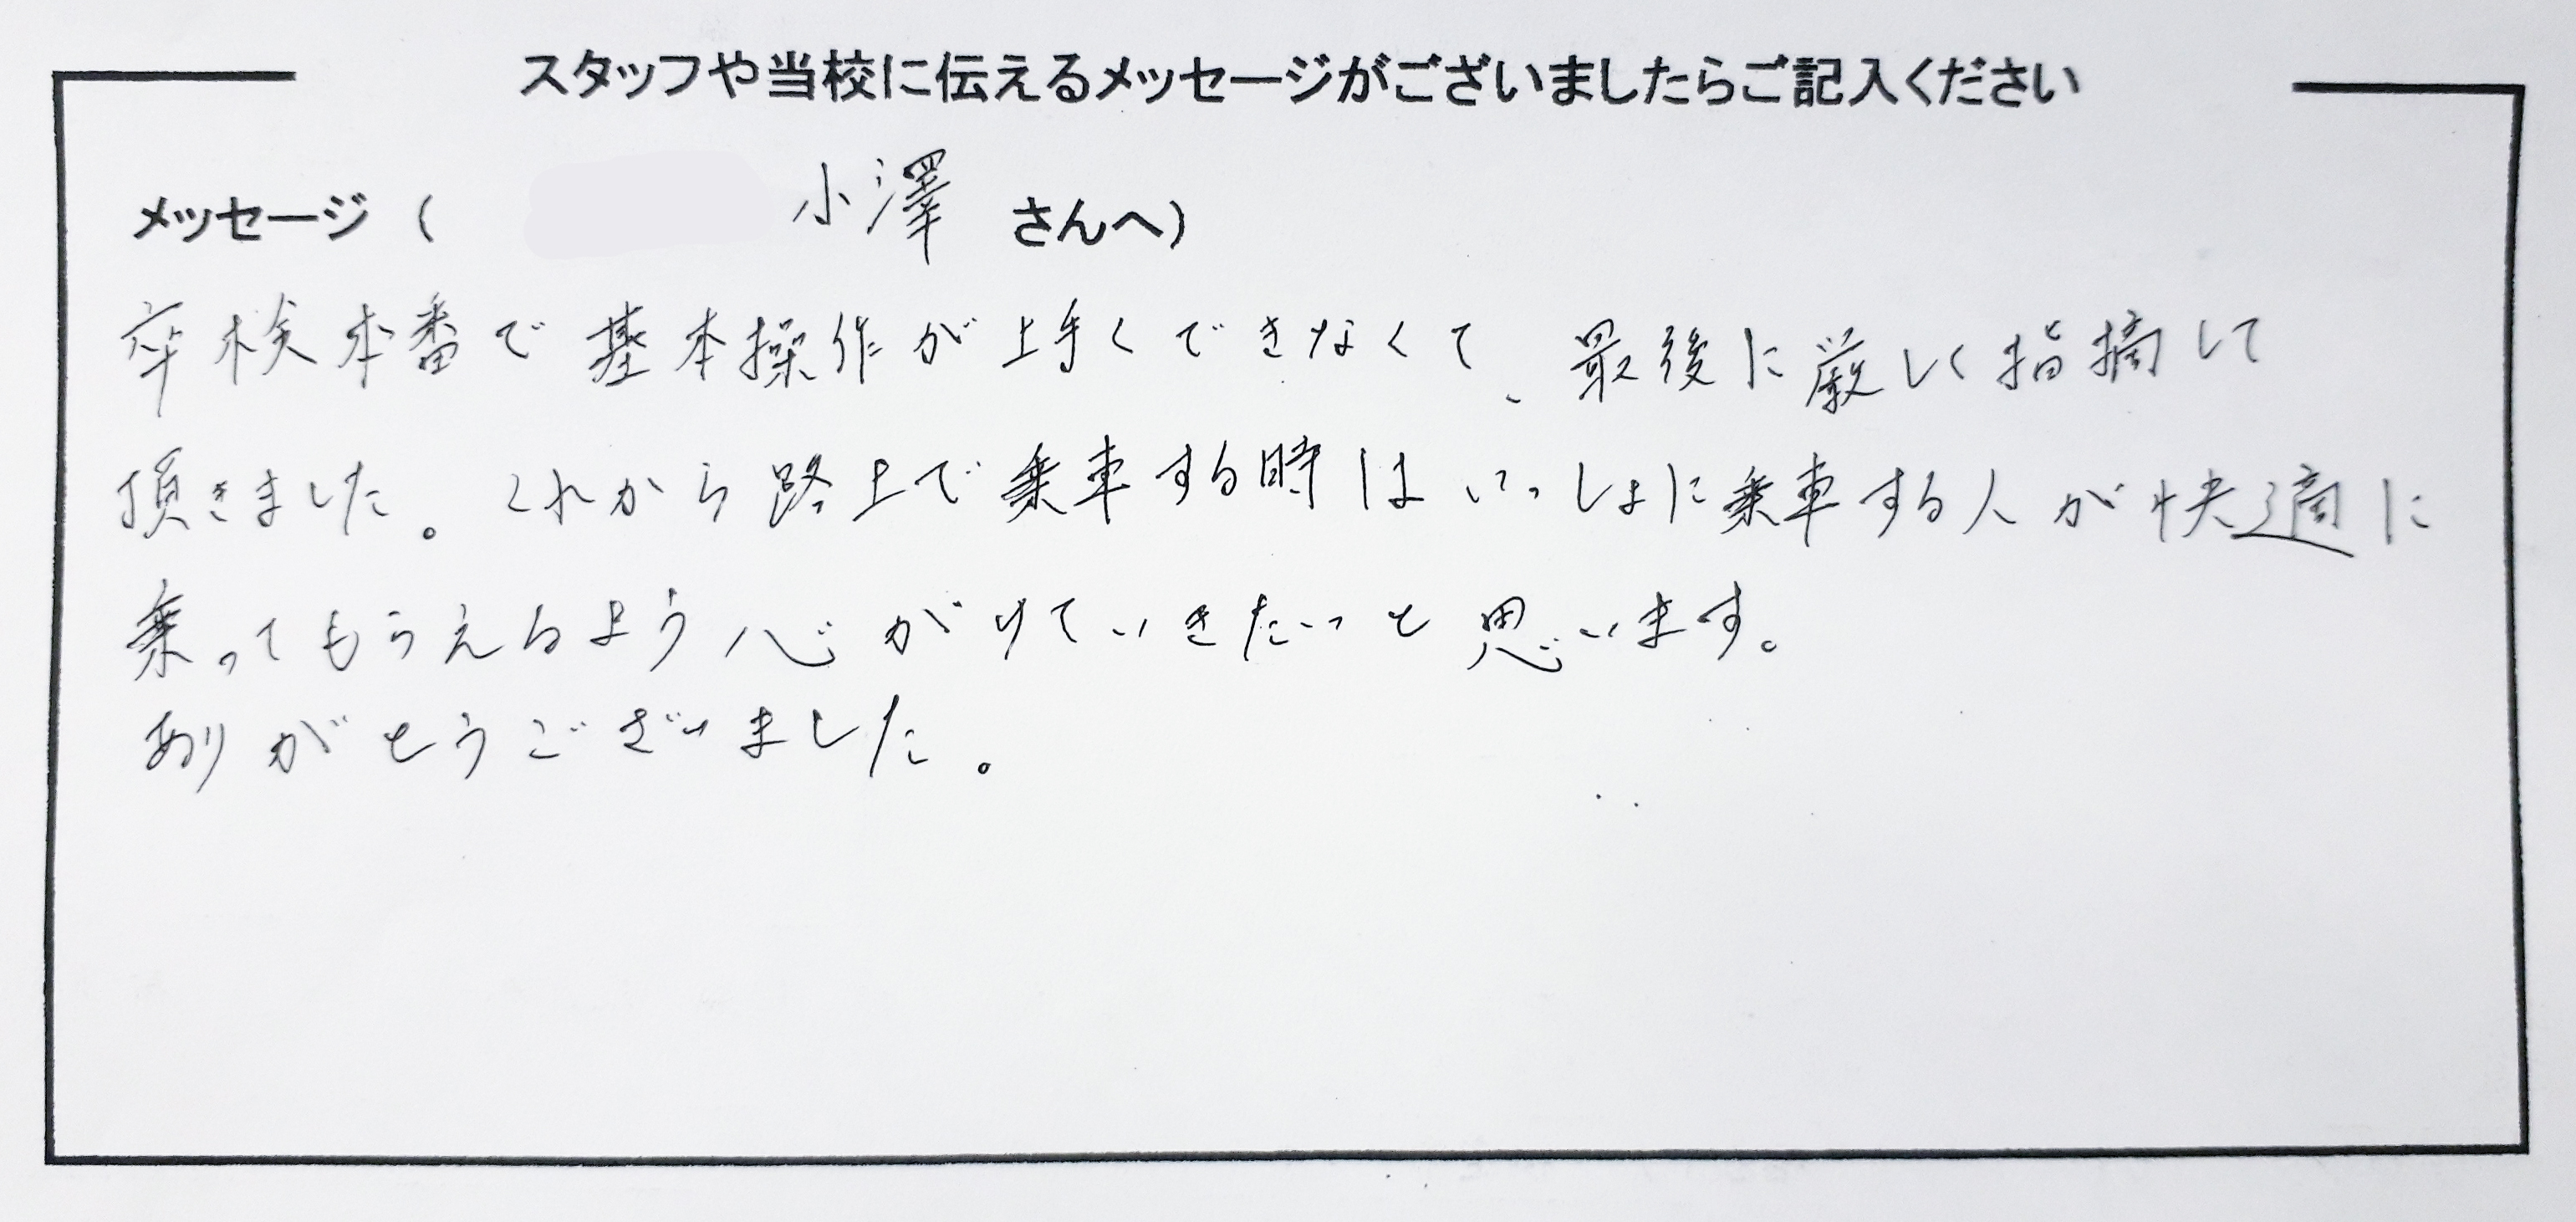 スタッフや当校に伝えるメッセージがございましたらご記入ください
メッセージ（ 小澤 さんへ）
卒検本番で基本操作が上手くできなくて、最後に厳しく指摘して
頂きました。これから路上で乗車する時はいっしょに乗車する人が快適に
乗ってもらえるよう心がけていきたいと思います。
ありがとうございました。